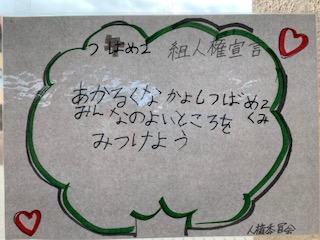 つばめ2 組人権宣言
あかるくなかよしつばめ2くみ
みんなのよいところを
みつけよう
人権委員会